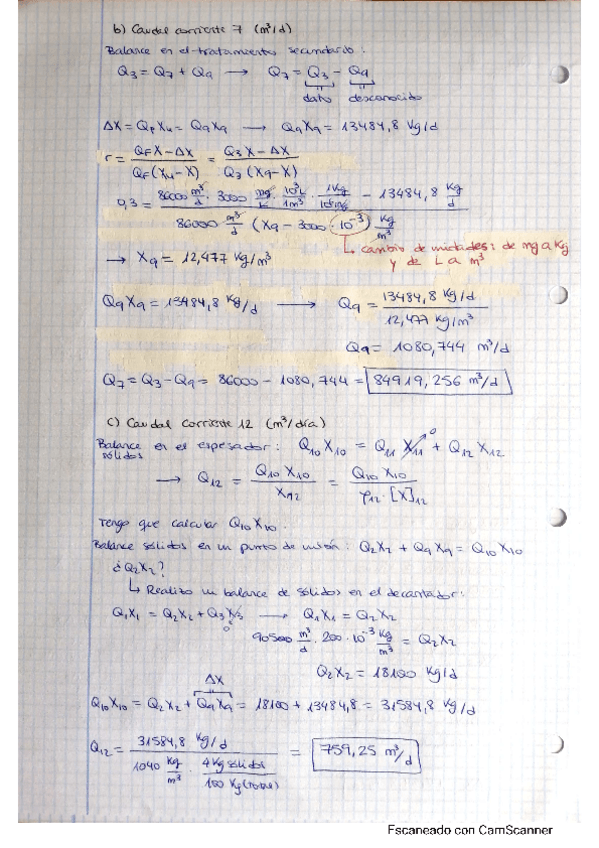 b) Caudal corriente 7 (m³/d)
Balance en el tratamiento secundario:
Q3 = Q7 + Q9 → Q7 = Q3 − Q9
dato desconocido
ΔX = QpXu = Q9X9 → Q9X9 = 13484,8 Kg/d
r = (QFX − ΔX) / (QF(Xu − X)) = (Q3X − ΔX) / (Q3(X9 − X))
0,3 = (86000 m³/d · 3000 mg/L · 10³L/1m³ · 1Kg/10⁶mg − 13484,8 Kg/d) / (86000 m³/d (X9 − 3000·10⁻³) Kg/m³)
↳ cambio de unidades: de mg a Kg
y de L a m³
→ X9 = 12,477 Kg/m³
Q9X9 = 13484,8 Kg/d → Q9 = 13484,8 Kg/d / 12,477 Kg/m³
Q9 = 1080,744 m³/d
Q7 = Q3 − Q9 = 86000 − 1080,744 = 84919,256 m³/d
c) Caudal corriente 12 (m³/día)
Balance en el espesador: Q10X10 = Q11X11 + Q12X12
sólidos 0
→ Q12 = Q10X10 / X12 = Q10X10 / ρ12 [X]12
Tengo que calcular Q10X10.
Balance sólidos en un punto de unión: Q2X2 + Q9X9 = Q10X10
¿Q2X2?
↳ Realizo un balance de sólidos en el decantador:
Q1X1 = Q2X2 + Q3X3 → Q1X1 = Q2X2
0
90500 m³/d · 200·10⁻³ Kg/m³ = Q2X2
Q2X2 = 18100 Kg/d
ΔX
Q10X10 = Q2X2 + Q9X9 = 18100 + 13484,8 = 31584,8 Kg/d
Q12 = 31584,8 Kg/d / (1040 Kg/m³ · 4Kg sólidos / 100 Kg (totale)) = 759,25 m³/d
Escaneado con CamScanner